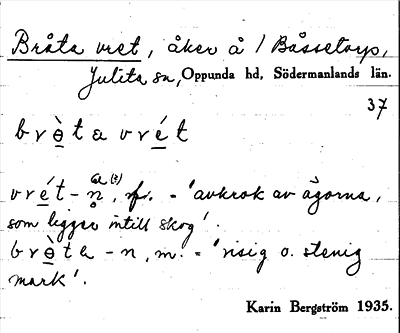 Bråta vret, åker å / Båssetorp,
Julita sn, Oppunda hd, Södermanlands län.
37
b r ò̲ t a v r é̲ t
vré̲t-n̥, f. = 'avkrok av ägorna,
som ligger intill skog'.
b r ò̲ t a - n, m. = 'risig o. stenig
mark'.
Karin Bergström 1935.